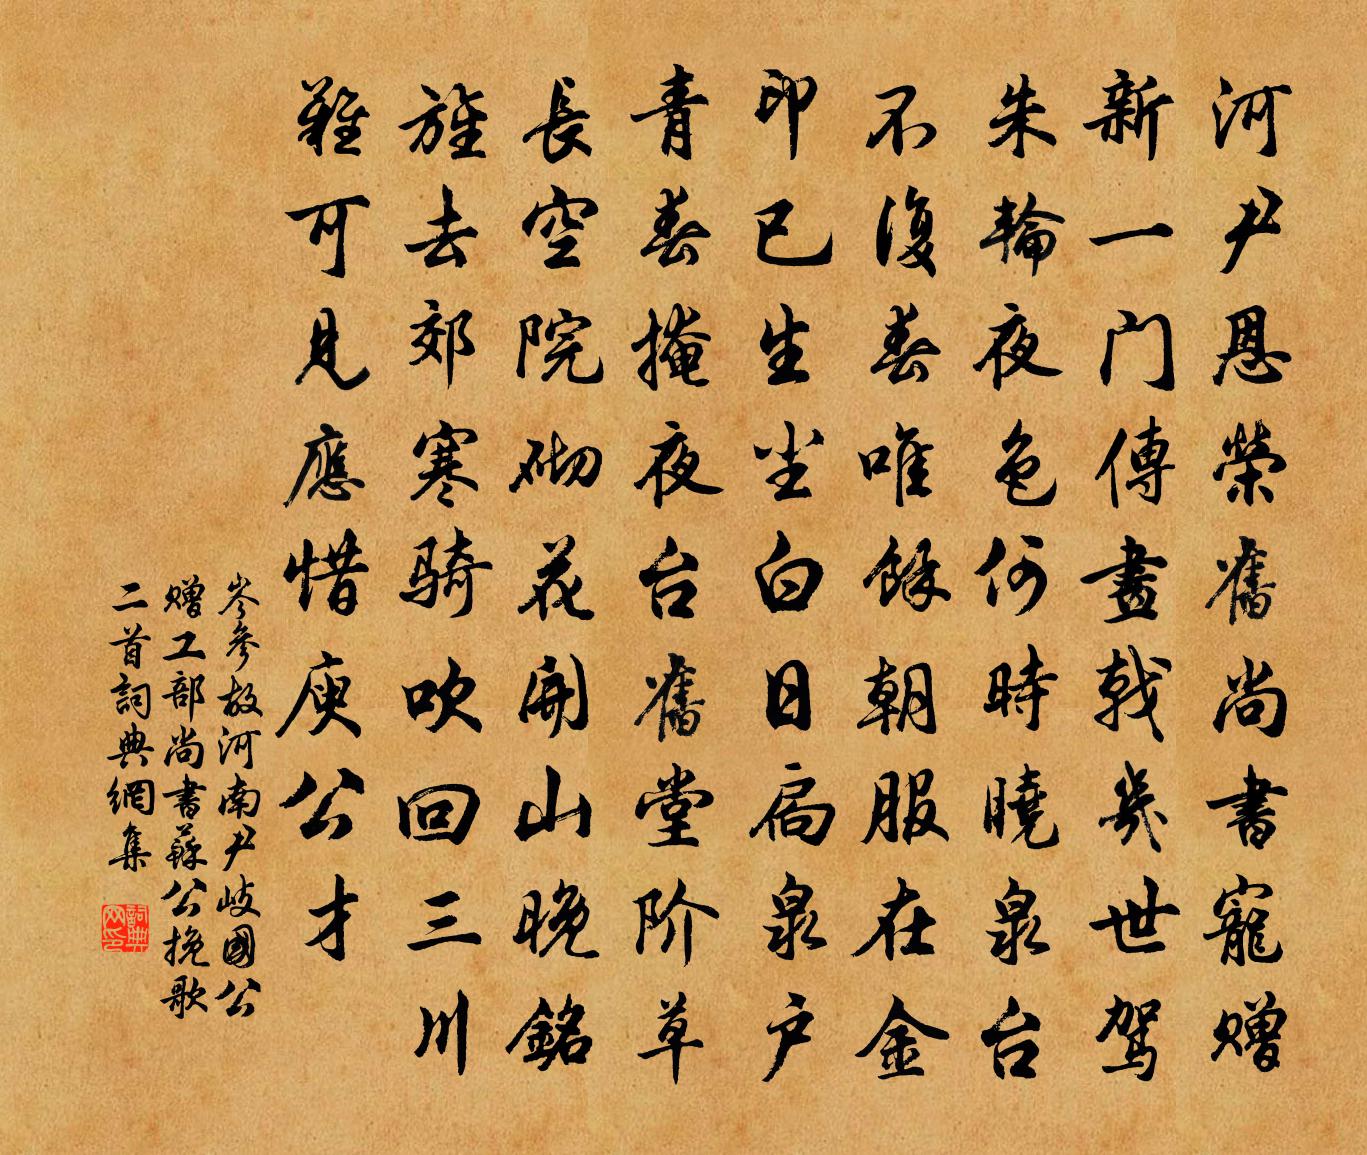 河尹恩榮舊尚書寵赠
新一门傳畫戟幾世駕
朱輪夜色何時曉泉台
不復春唯餘朝服在金
印已生尘白日扃泉户
青春掩夜台舊堂阶草
長空院砌花開山晚銘
旌去郊寒骑吹回三川
難可見應惜庾公才
岑參故河南尹岐國公
赠工部尚書蘇公挽歌
二首詞典網集
詞典网印